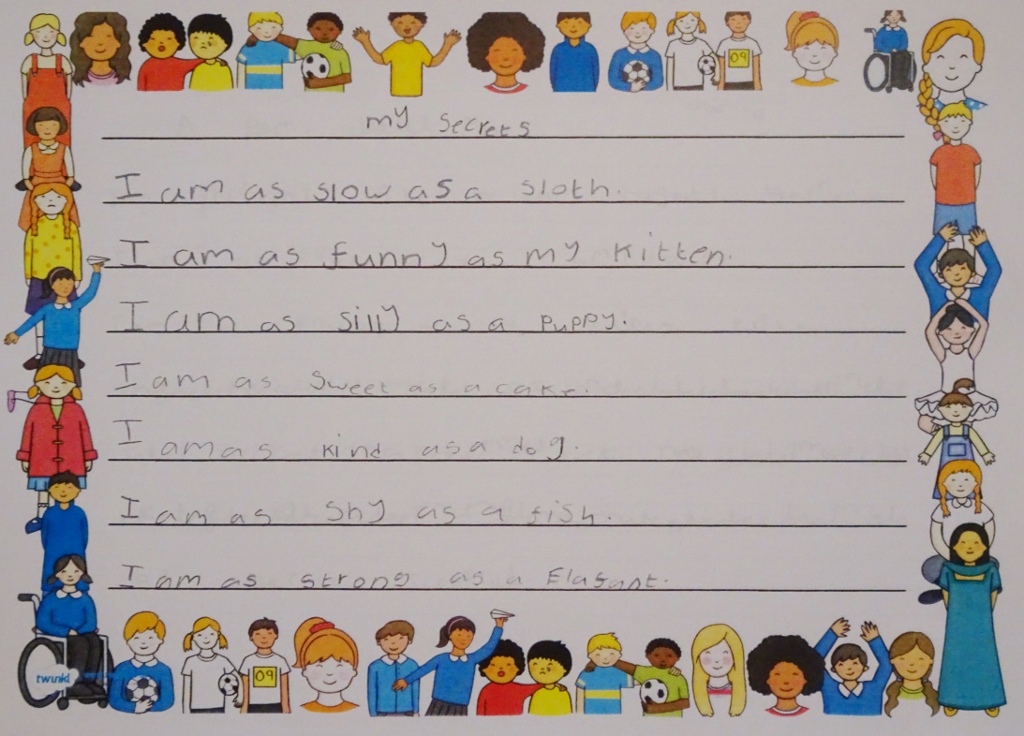 09
my secrets
I am as slow as a sloth.
I am as funny as my kitten.
I am as silly as a puppy.
I am as sweet as a cake.
I am as kind as a dog.
I am as shy as a fish.
I am as strong as a Elafant.
twinkl
09